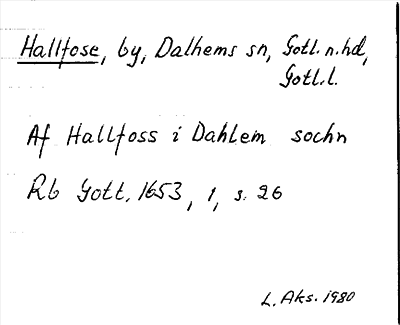 Hallfose, by, Dalhems sn, Gotl. n. hd,
Gotl. l.
Af Hallfoss i Dahlem sochn
Rb Gott. 1653, 1, s. 26
L. Aks. 1980